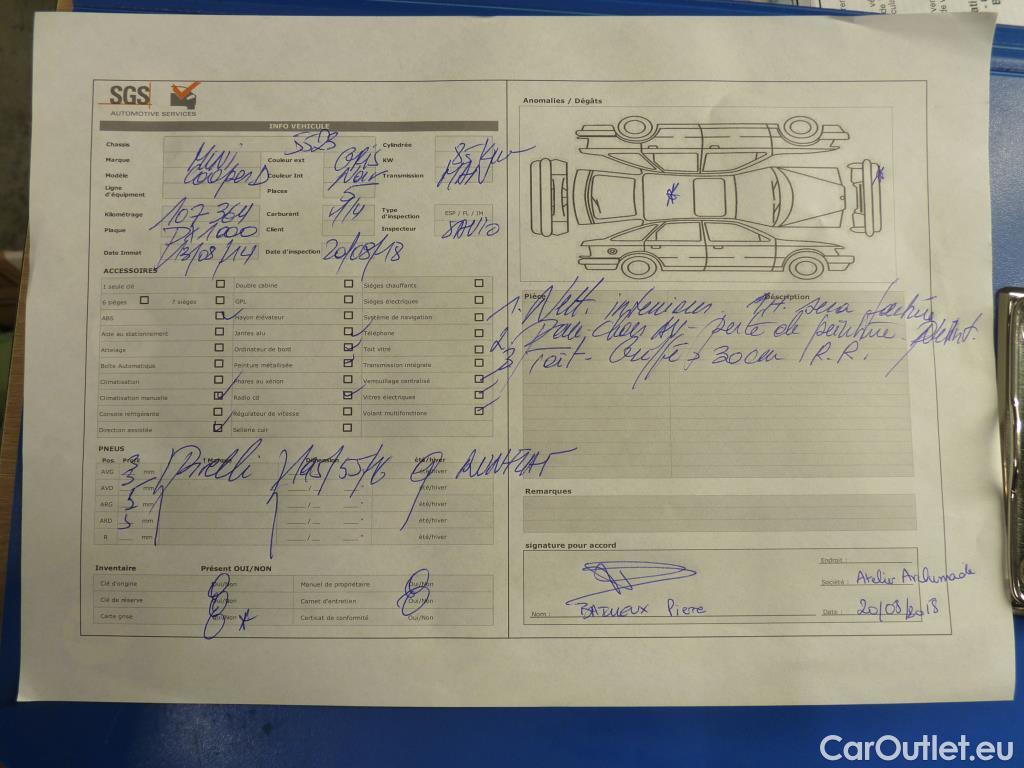 SGS
AUTOMOTIVE SERVICES
INFO VEHICULE
Chassis 5523 Cylindrée
Marque MINI Couleur ext GRIS KW 85 KW
Modèle Cooper D Couleur Int Noir Transmission MAN
Ligne d'équipement Places 5
Kilométrage 107 364 Carburant Type d'inspection ESP / FL / IM
Plaque Client Inspecteur
Date Immat 13/08/14 Date d'inspection 20/08/18
ACCESSOIRES
1 seule clé Double cabine Sièges chauffants
6 sièges 7 sièges GPL Sièges électriques
ABS Hayon élévateur Système de navigation
Aide au stationnement Jantes alu Téléphone
Attelage Ordinateur de bord Toit vitré
Boîte Automatique Peinture métallisée Transmission intégrale
Climatisation Phares au xénon Verrouillage centralisé
Climatisation manuelle Radio cd Vitres électriques
Console réfrigérante Régulateur de vitesse Volant multifonctions
Direction assistée Sellerie cuir
PNEUS
Pos. Profil Marque Dimension été/hiver
AVG 3 mm Pirelli 195/55/16 RUNFLAT
AVD 3 mm été/hiver
ARG 5 mm été/hiver
ARD 5 mm été/hiver
R mm été/hiver
Inventaire Présent OUI/NON
Clé d'origine Oui/Non Manuel de propriétaire Oui/Non
Clé de réserve Oui/Non Carnet d'entretien Oui/Non
Carte grise Oui/Non Certicat de conformité Oui/Non
Anomalies / Dégâts
Pièce Description
1. Nett. interieur.
2. Pare-chocs AV - perte de peinture
3. Toit - Griffé > 30cm R.R.
Remarques
signature pour accord
Endroit :
Société : Atelier
Nom : BAILIEUX Pierre Date : 20/08/2018
CarOutlet.eu